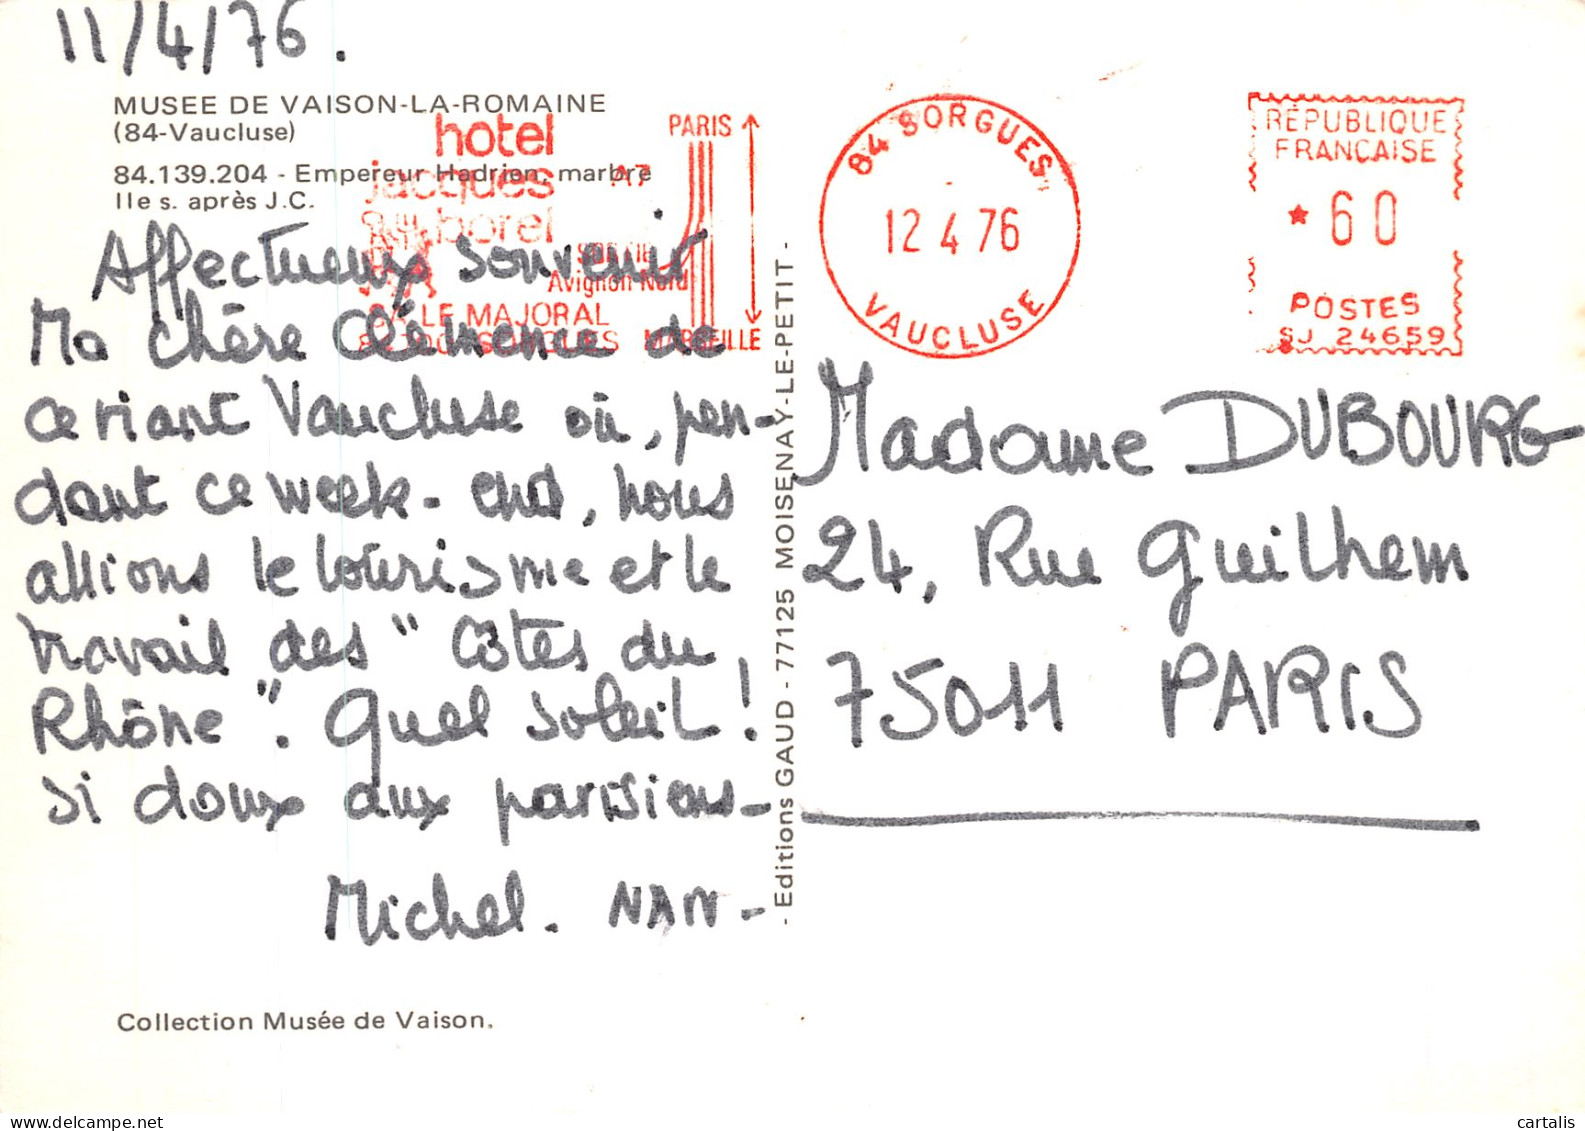 11/4/76.
MUSEE DE VAISON-LA-ROMAINE
(84-Vaucluse)
84.139.204 - Empereur Hadrien, marbre
IIe s. après J.C.
hotel
jacques
borel
PARIS
A7
SORTIE
Avignon-Nord
LE MAJORAL
SORGUES
MARSEILLE
84 SORGUES
12.4.76
VAUCLUSE
RÉPUBLIQUE
FRANCAISE
* 60
POSTES
SJ 24659
Affectueux souvenir
Ma chère Clémence de
ce riant Vaucluse où, pen-
dant ce week-end, nous
allions le tourisme et le
travail des "Côtes du
Rhône". Quel soleil !
si doux aux parisiens -
Michel. NAN -
- Editions GAUD - 77125 MOISENAY-LE-PETIT -
Madame DUBOURG
24, Rue Guilhem
75011 PARIS
Collection Musée de Vaison.
cartalis